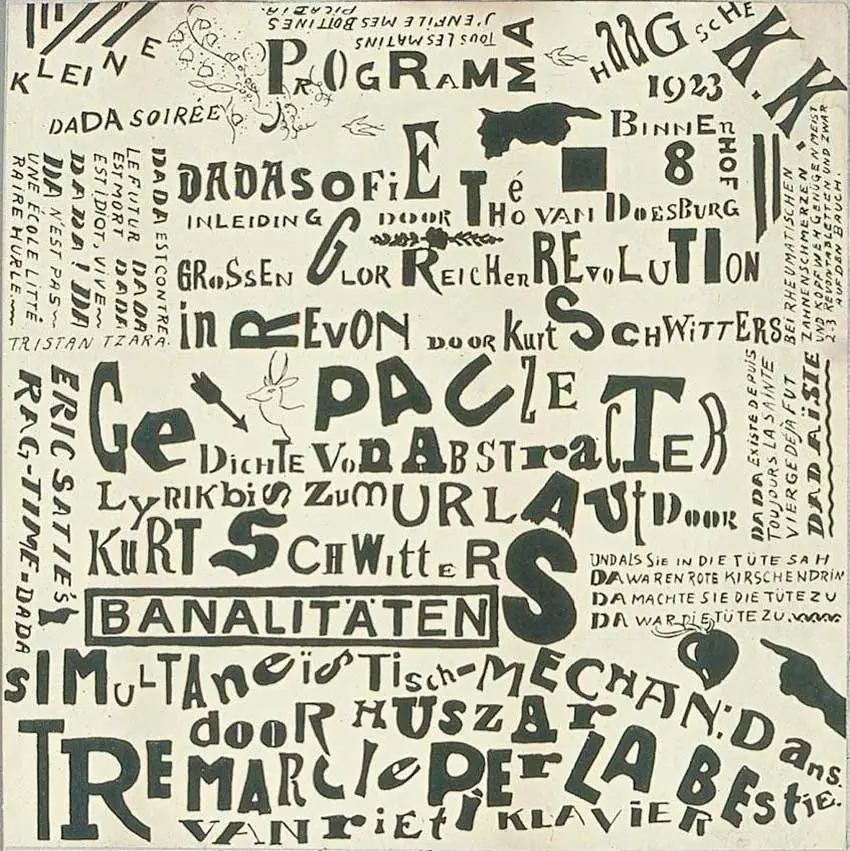 KLEINE
DADA SOIRÉE
TOUS LES MATINS
J'ENFILE MES BOTTINES
PICABIA.
PROGRAMMA
HAAGSCHE
K.K.
1923
BINNENHOF
8
DADASOFiE
INLEIDING DOOR Théo VAN DOESBURG
GROSSEN GLORREICHEN REVOLUTION
in REVON DOOR Kurt SCHWITTERS
DADA EST CONTRE
LE FUTUR DADA
EST MORT DADA
EST IDIOT, VIVE
DADA! DA
DA N'EST PAS
UNE ÉCOLE LITTÉ
RAIRE HURLE
TRISTAN TZARA.
BEI RHEUMATISCHEN
ZAHNENSCHMERZEN
UND KOPFWEH GENÜGEN MEIST
2-3 REVONTABLETTEN UND ZWAR
AUF DEN BAUCH.
PAUZE
GeDICHTE VON ABSTracTER
LyRIK biS ZUM URLAUt DOOR
KURT SCHWittERS
BANALITÄTEN
ERIC SATIE'S
RAG-TIME=DADA
DADA EXISTE DEPUIS
TOUJOURS LA SAINTE
VIERGE DÉJÀ FUT
DADAÏSTE
UND ALS SIE IN DIE TÜTE SAH
DA WAREN ROTE KIRSCHEN DRIN
DA MACHTE SIE DIE TÜTE ZU
DA WAR DIE TÜTE ZU.
SIMULTANeïsTisch-MECHAN: Dans.
dooR HUSZAr
TRE MARCIe PEr LA BEStie.
VAN rietI KLAVIER